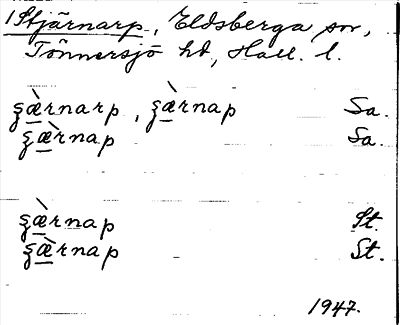 1 Stjärnarp, Eldsberga sn,
Tönnersjö hd, Hall. l.
ʂæ̀rnarp, ʂæ̀rnap Sa.
ʂæ̀rnap Sa.
ʂæ̀rnap St.
ʂæ̀rnap St.
1947.